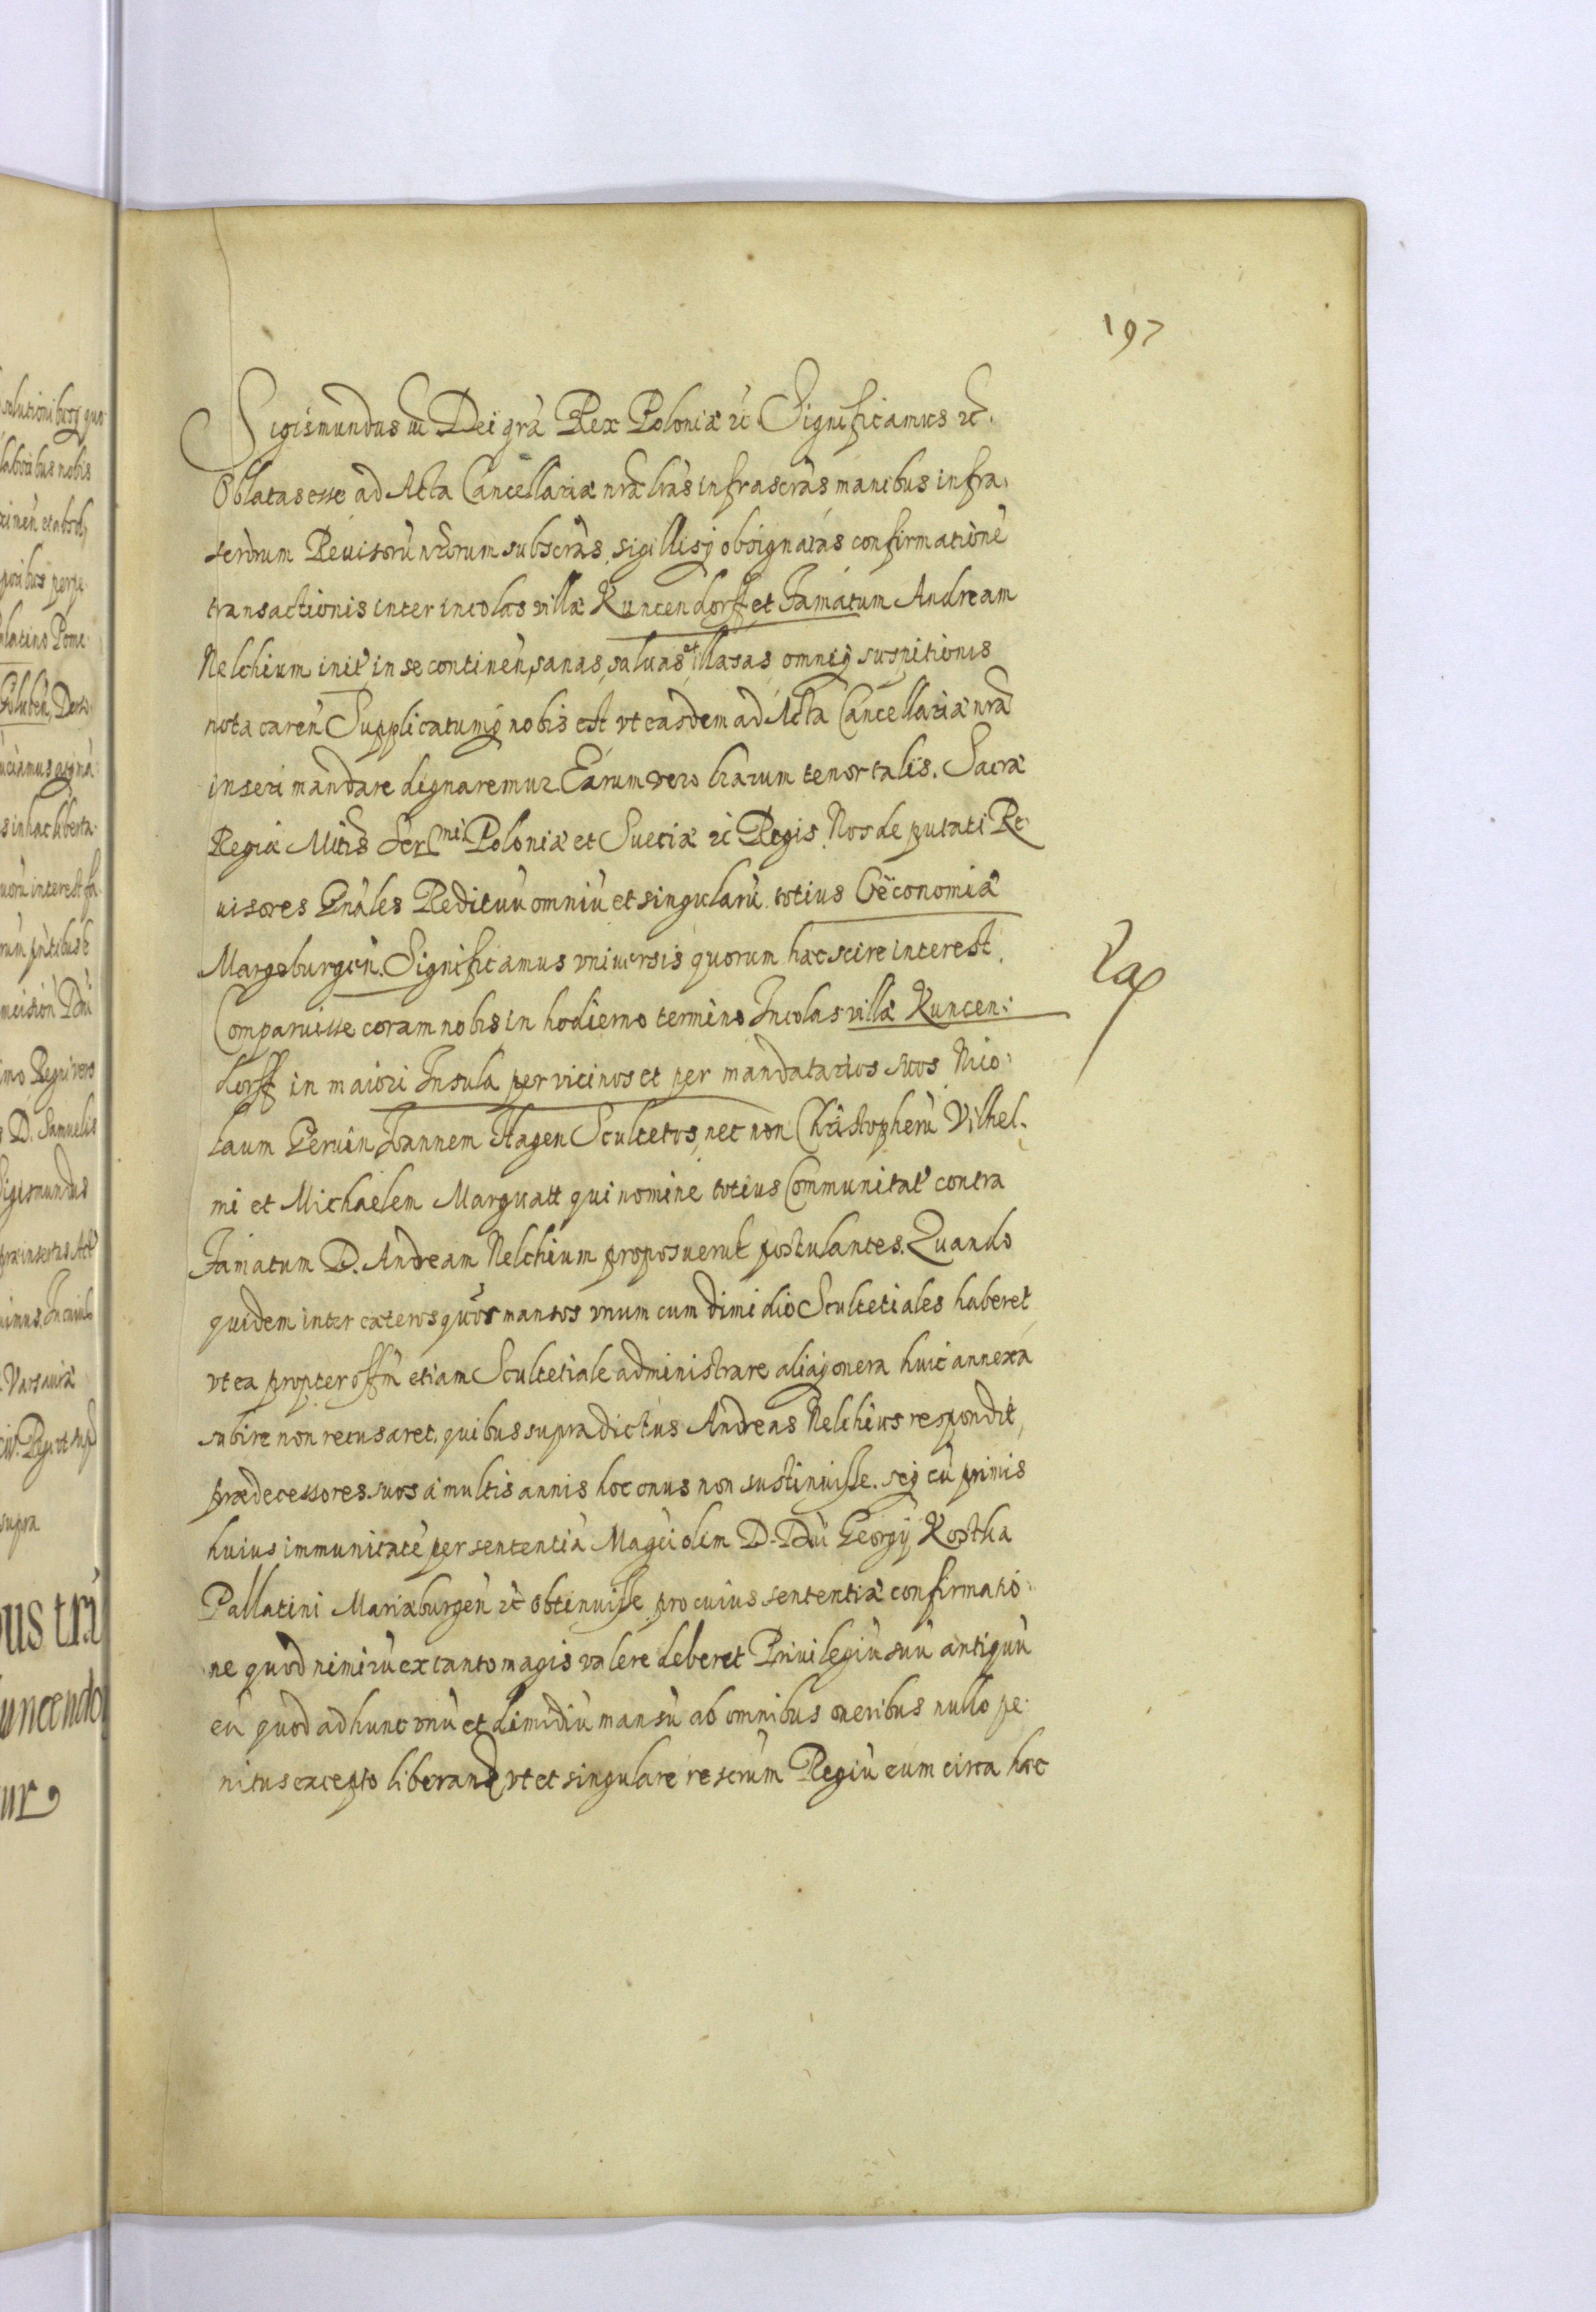 197
Sigismundus III Dei grã Rex Poloniæ ꝛc Significamus ꝛc.
Oblatas esse ad Acta Cancellariæ nrã lrãs infrascrãs manibus infra-
scrõrum Reuisorũ nrõrum subscrãs, sigillisq̃ obsignatas confirmationẽ
transactionis inter incolas villæ Kuncendorff et Famatum Andream
Nelchium init̃ in se continen̂, sanas, saluas et illæsas, omniq̃ suspitionis
nota caren̂. Supplicatumq̃ nobis est vt easdem ad Acta Cancellariæ nrã
inseri mandare dignaremur. Earum vero lrarum tenor talis. Sacræ
Regiæ Mttis Serᵐⁱ Poloniæ et Sueciæ ꝛc Regis. Nos deputati Re-
uisores Gnãles Redituũ omniũ et singularũ totius Oeconomiæ
Margeburgen̂. Significamus vniuersis quorum hæc scire interest.
Comparuisse coram nobis in hodierno termino Incolas villæ Kuncen-
dorff in maiori Insula per vicinos et per mandatarios suos Nico-
laum Geruin Joannem Hagen Scultetos, nec non Christopherũ Vilhel-
mi et Michaelem Marguatt qui nomine totius Communitat̃ contra
Famatum D. Andream Nelchium proposuerut̃ postulantes. Quando
quidem inter cæteros quos mansos vnum cum dimidio Scultetiales haberet
vt ea propter offm̃ etiam Scultetiale administrare aliaq̃ onera huic annexa
subire non recusaret. quibus supradictus Andreas Nelchius respondit,
prædecessores suos à multis annis hoc onus non sustinuisse. seq̃ cũ primis
huius immunitatẽ per sententiã Magci olim D. Dñi Georgij Kostka
Pallatini Mariæburgen̂ ꝛc obtinuisse pro cuius sententiæ confirmatio-
ne quod nimirũ ex tanto magis valere deberet Priuilegiũ suũ antiquũ
eũ quod ad hunc vnũ et dimidiũ mansũ ab omnibus oneribus nullo pe-
nitus excepto liberand̃, vt et singulare rescrũm Regiũ eum circa hæc